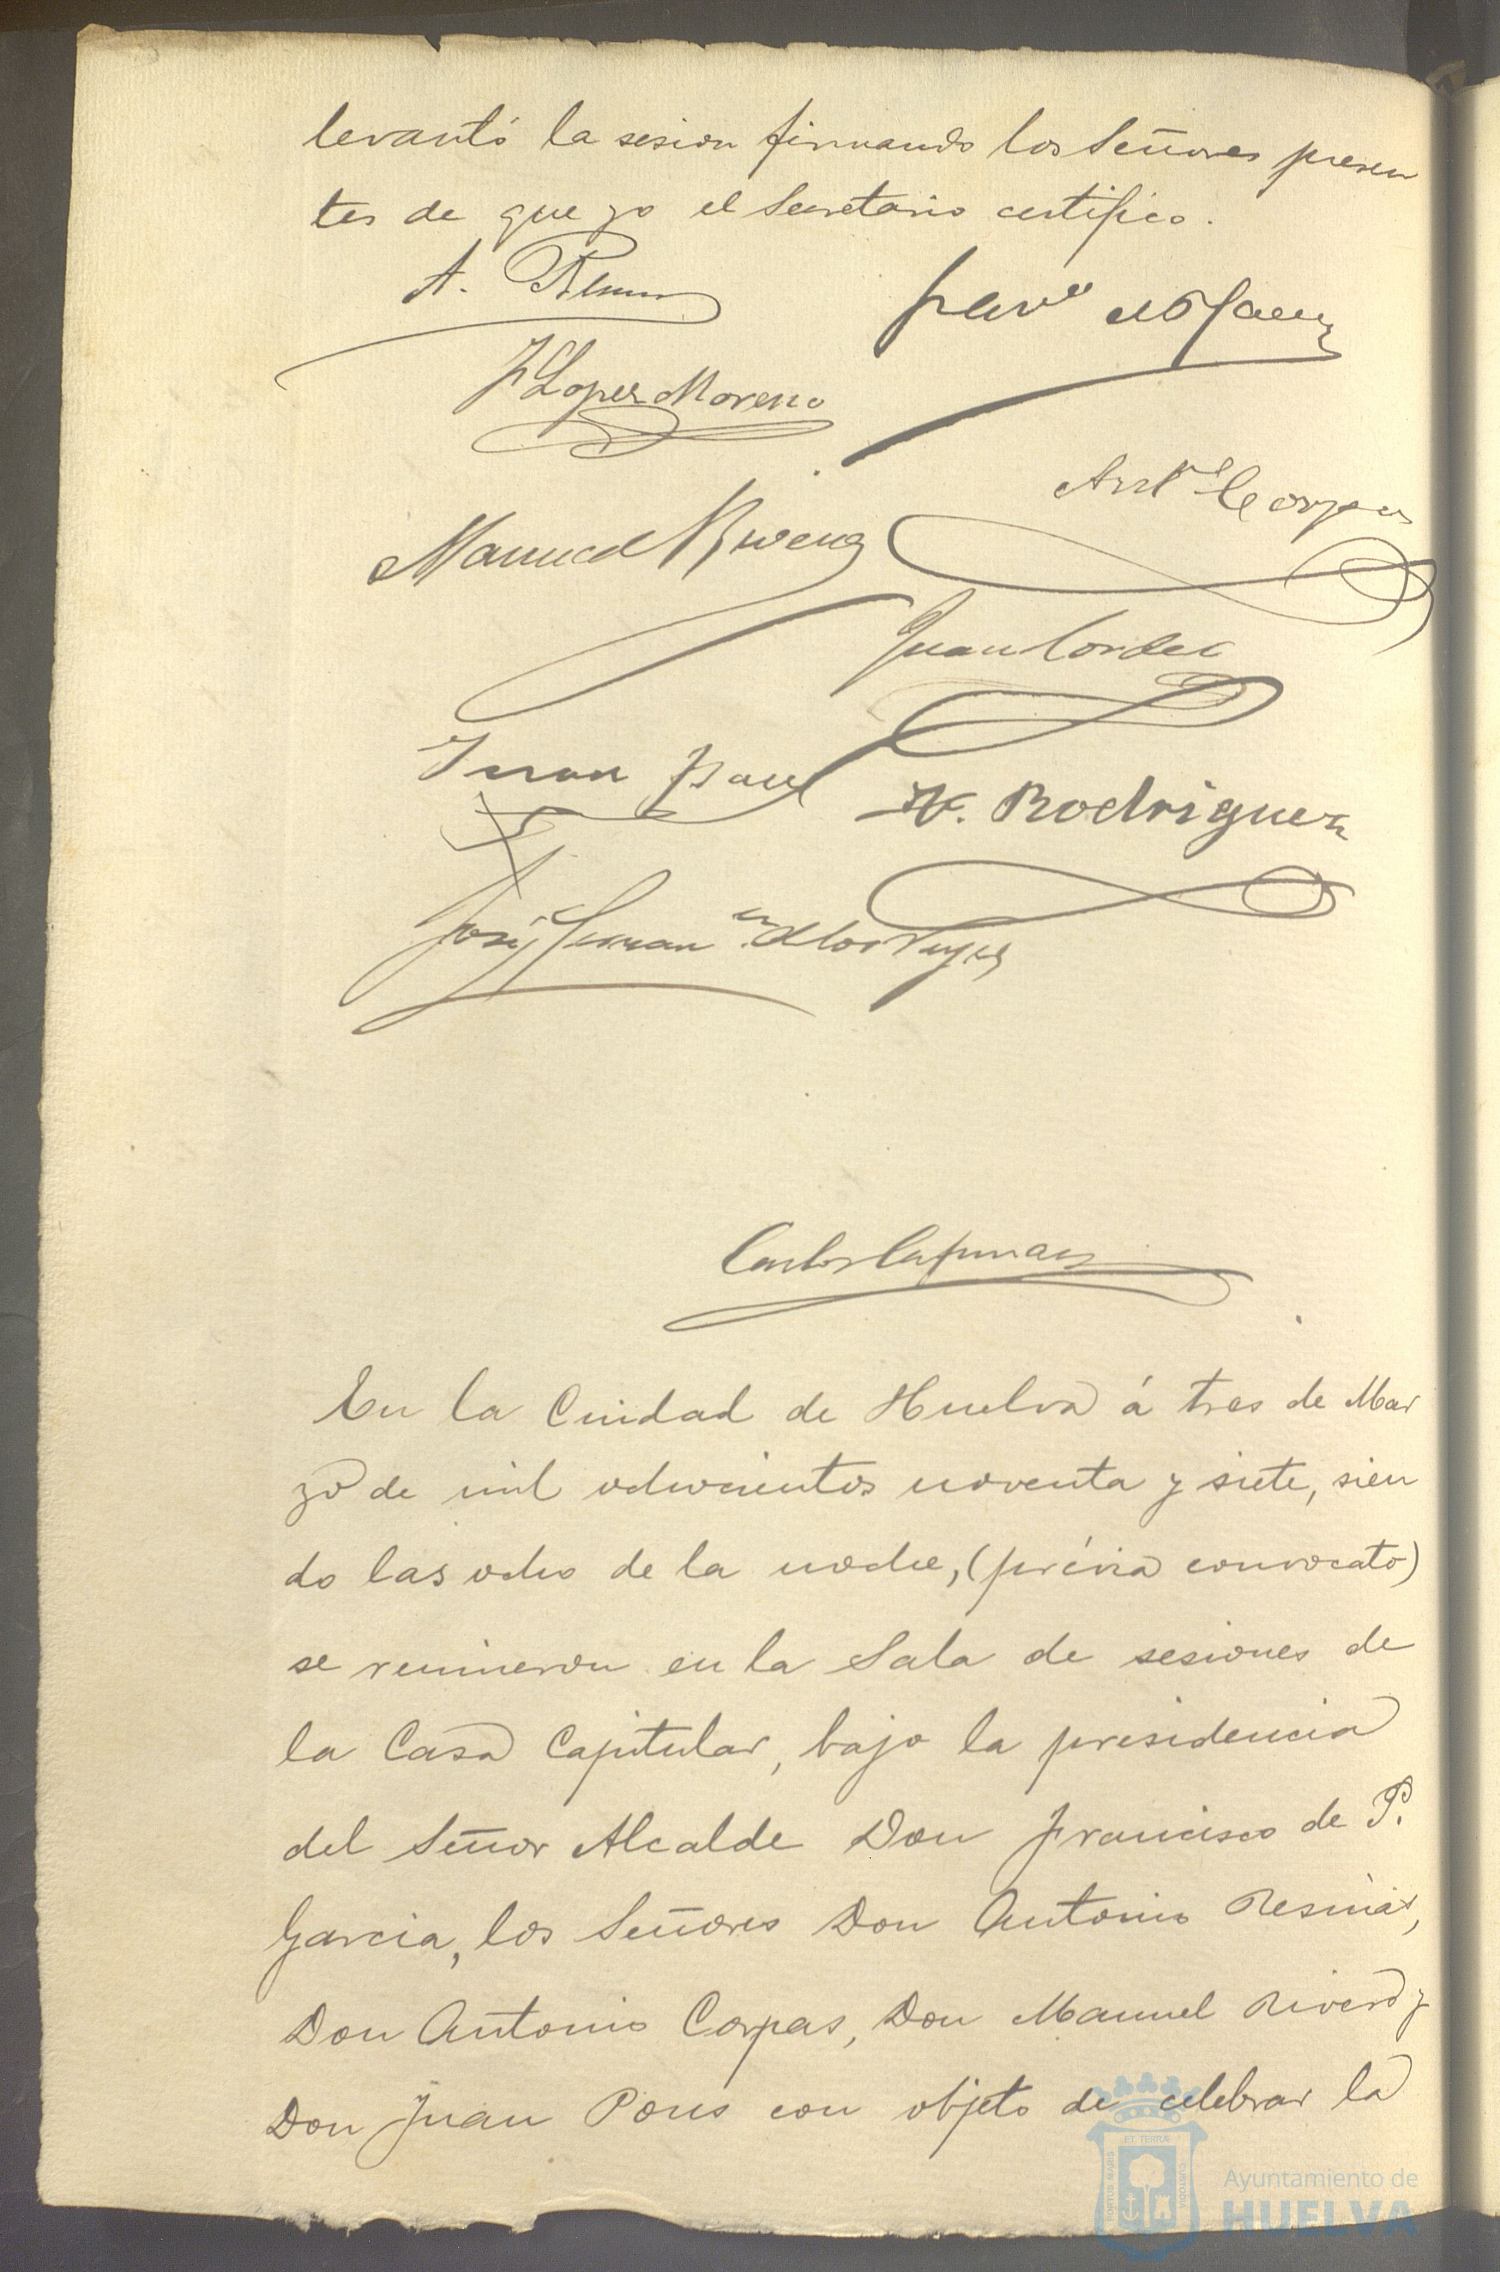 levantó la sesion firmando los Señores presen
tes de que yo el Secretario certifico.
A.
F Lopez Moreno
Ant.º Corpas
Manuel Rivera
Juan Cordero
Juan
Rodriguez
José
Carlos
En la Ciudad de Huelva á tres de Mar
zo de mil ochocientos noventa y siete, sien
do las ocho de la noche, (prévia convocato)
se reunieron en la Sala de sesiones de
la Casa Capitular, bajo la presidencia
del Señor Alcalde Don Francisco de P.
Garcia, los Señores Don Antonio
Don Antonio Corpas, Don Manuel Rivera y
Don Juan Pons con objeto de celebrar la
PORTUS MARIS ET TERRAE CUSTODIA
Ayuntamiento de
HUELVA